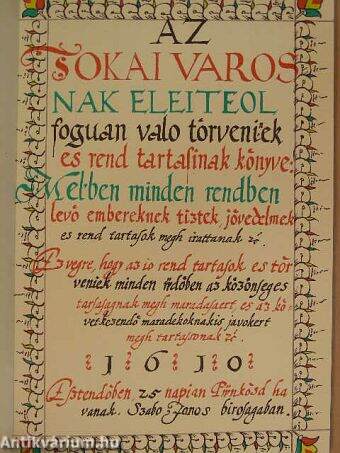 AZ
TOKAI VAROS
NAK ELEITEOL
foguan valo törveniek
es rend tartasinak könyve:
Melben minden rendben
levö embereknek tiztek, jövedelmek
es rend tartasok megh irattanak ze.
Azvegre, hogy az io rend tartasok es tör
veniek minden üdöben az közönseges
tarsasagnak megh maradasaert, es az kö
vetkezendö maradekoknakis javokert
megh tartassanak ze.
1610
Esztendöben, 25 napian Pünkösd ha
vanak. Szabo Janos birosagaban.
Antikvárium.hu